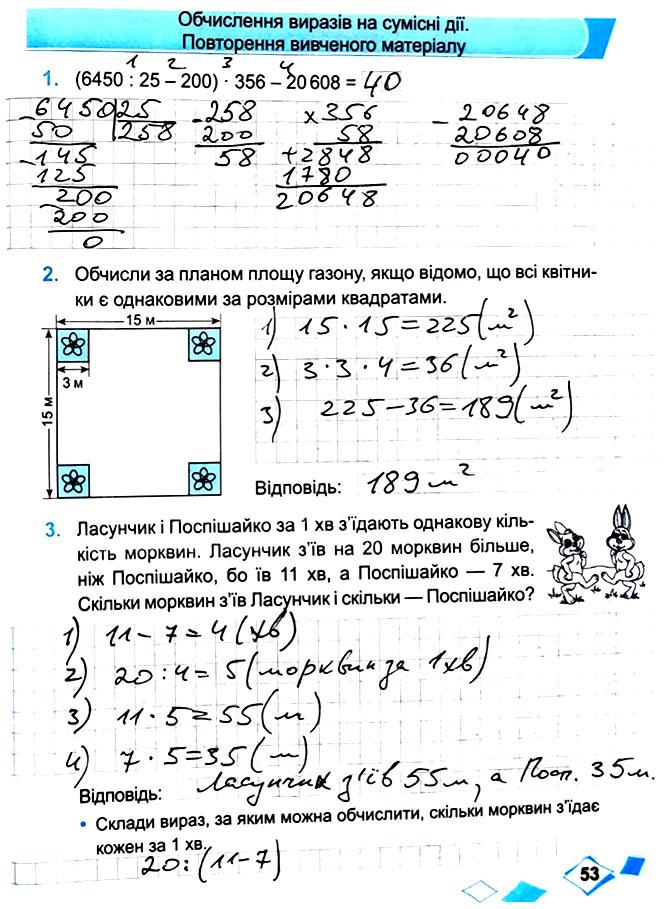 Обчислення виразів на сумісні дії.
Повторення вивченого матеріалу
1 2 3 4
1. (6450 : 25 – 200) · 356 – 20 608 = 40
- 6450 25
50 258
- 145
125
- 200
200
0
- 258
200
58
x 356
58
+ 2848
1780
20648
- 20648
20608
00040
2. Обчисли за планом площу газону, якщо відомо, що всі квітни-
ки є однаковими за розмірами квадратами.
15 м
3 м
15 м
1) 15 · 15 = 225 (м²)
2) 3 · 3 · 4 = 36 (м²)
3) 225 – 36 = 189 (м²)
Відповідь: 189 м²
3. Ласунчик і Поспішайко за 1 хв з'їдають однакову кіль-
кість морквин. Ласунчик з'їв на 20 морквин більше,
ніж Поспішайко, бо їв 11 хв, а Поспішайко — 7 хв.
Скільки морквин з'їв Ласунчик і скільки — Поспішайко?
1) 11 – 7 = 4 (хв)
2) 20 : 4 = 5 (морквин за 1 хв)
3) 11 · 5 = 55 (м)
4) 7 · 5 = 35 (м)
Відповідь: Ласунчик з'їв 55 м, а Посп. 35 м.
• Склади вираз, за яким можна обчислити, скільки морквин з'їдає
кожен за 1 хв.
20 : (11 – 7)
53